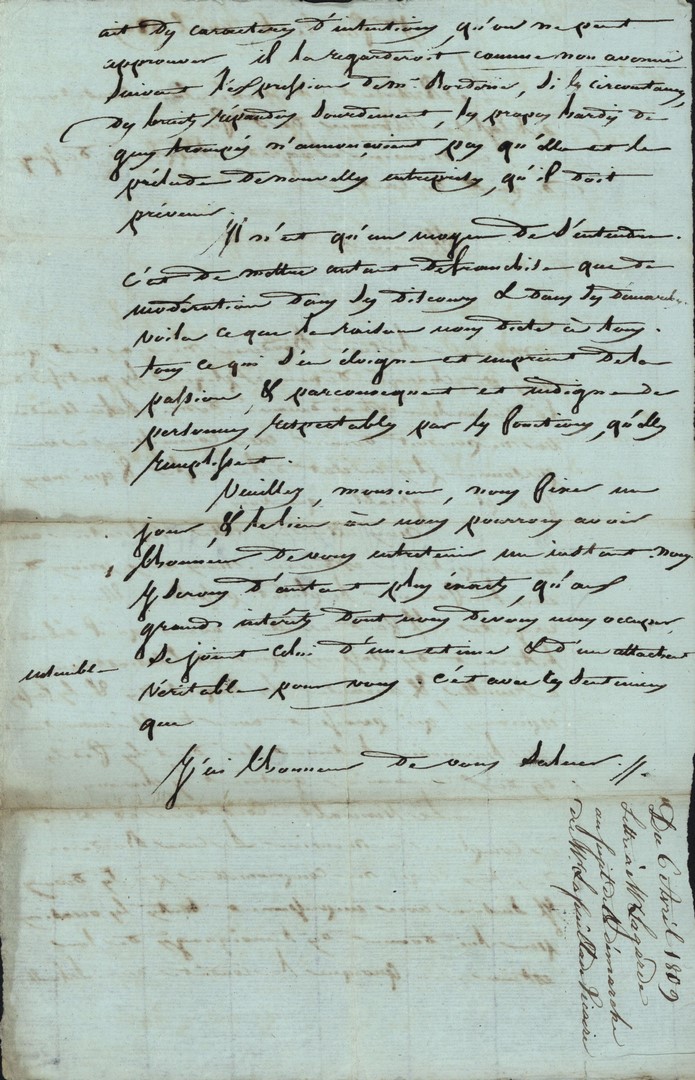 ait des caracteres d'intentions, qu'on ne peut
approuver il la regarderoit comme non avenue
suivant l'expression de mr. Borderie, si les circonstances,
des bruits répandus sourdement, les propos hardis de
gens trompés n'annoncoient pas qu'elle est le
prélude de nouvelles entreprises, qu'il doit
prévenir.
Il n'est qu'un moyen de s'entendre.
c'est de mettre autant de franchise que de
modération dans les discours & dans les démarches.
voila ce que la raison nous dicte à tous.
tous ce qui s'en éloigne est empreint de la
passion, & parconsequent est indigne de
personnes respectables par les fonctions, qu'elles
remplissent.
Veuillez, monsieur, nous fixer un
jour, & le lieu où nous pourrons avoir
l'honneur de vous entretenir un instant. nous
y serons d'autant plus exacts, qu'aux
grands intérêts dont nous devons nous occuper,
se joint celui d'une estime & d'un attachement
véritable pour vous. c'est avec les sentimens
que
J'ai l'honneur de vous saluer.//.
Du 6 Avril 1809
Lettre à Mr Lagarde
au sujet de la démarche
de Mr. Lafeuillade Vicaire